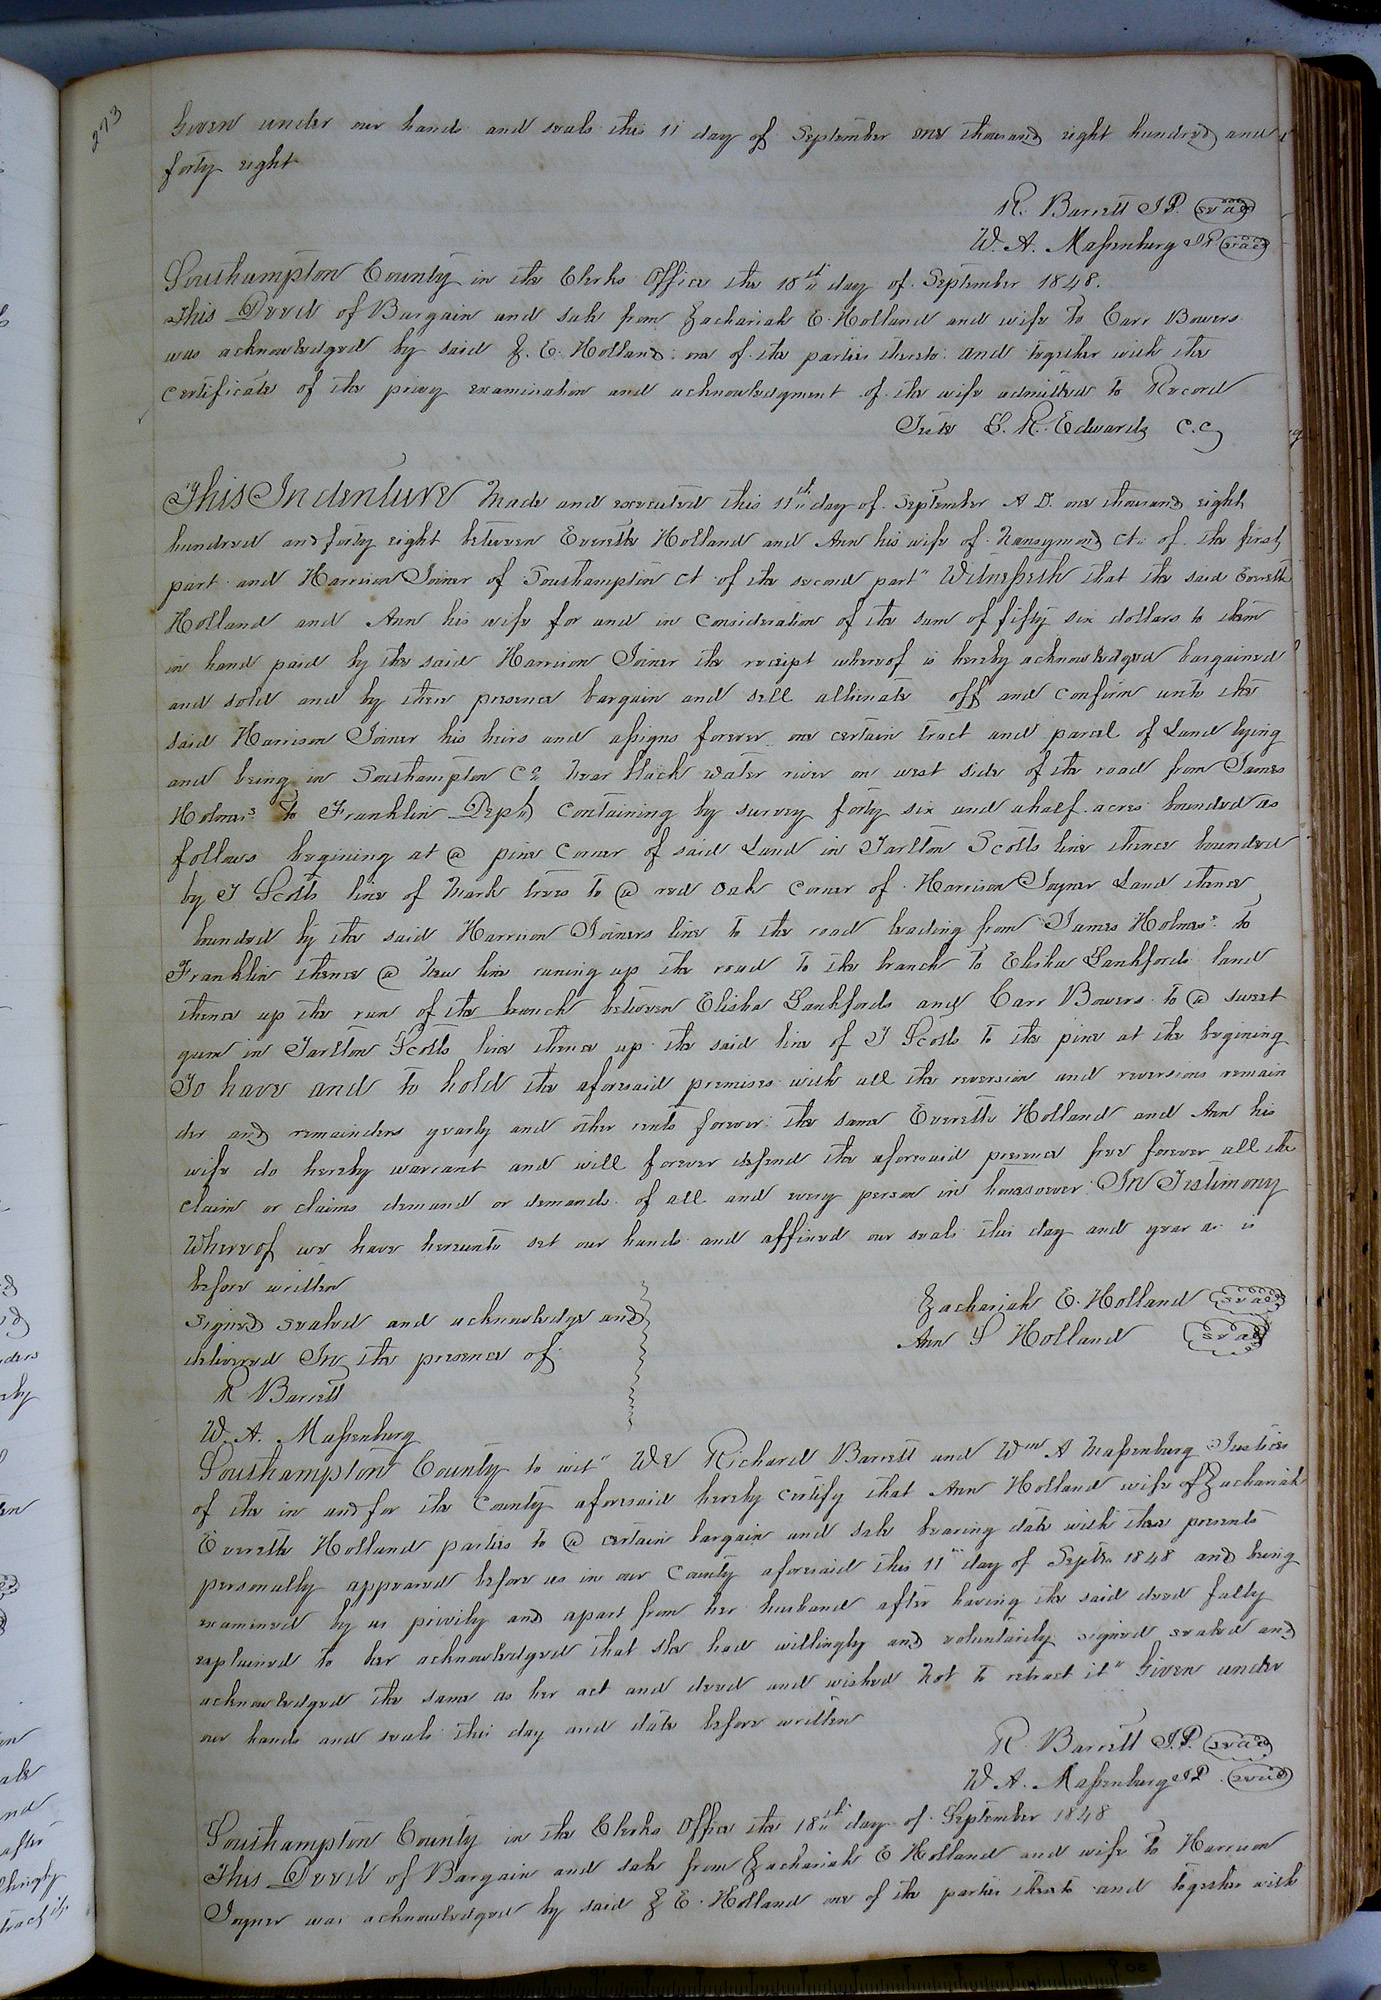 273
Given under our hands and seals this 11 day of September one thousand eight hundred and
forty eight
R. Barrett J.P. (seal)
W. A. Massenburg J P (seal)
Southampton County in the Clerks Office the 18th day of September 1848.
This Deed of Bargain and sale from Zachariah E. Holland and wife to Carr Bowers
was acknowledged by said Z. E. Holland one of the parties thereto and together with the
certificate of the privy examination and acknowledgment of the wife admitted to Record
Teste L. R. Edwards C. C
This Indenture Made and executed this 11th day of September A D. one thousand eight
hundred and forty eight between Everette Holland and Ann his wife of Nansymond Ct. of the first
part and Harrison Joiner of Southampton Ct of the second part" Witnesseth that the said Everette
Holland and Ann his wife for and in consideration of the sum of fifty six dollars to them
in hand paid by the said Harrison Joiner the receipt whereof is hereby acknowledged bargained
and sold and by these presence bargain and sell allienate off and confirm unto the
said Harrison Joiner his heirs and assigns forever one certain tract and parcel of Land lying
and being in Southampton Co Near black water river on west side of the road from James
Holmes to Franklin Depo containing by survey forty six and a half acres bounded as
follows begining at @ pine Corner of said Land in Tarlton Scotts line thence bounded
by T Scotts line of Mark trees to @ red Oak Corner of Harrison Joyner Land thence
bounded by the said Harrison Joiners line to the road leading from James Holmes to
Franklin thence @ New line runing up the road to the branch to Elisha Lankfords land
thence up the run of the branch between Elisha Lankfords and Carr Bowers to @ sweet
gum in Tarlton Scotts line thence up the said line of T Scotts to the pine at the begining
To have and to hold the aforesaid premises with all the reversion and reversions remain
der and remainders yearly and other rents forever the same Everette Holland and Ann his
wife do hereby warrant and will forever defend the aforesaid presence free forever all the
claim or claims demand or demands of all and every person in housoever In Testimony
Whereof we have hereunto set our hands and affixed our seals this day and year as is
before written
Signed sealed and acknowledge and
delivered In the presence of
Zachariah E. Holland (seal)
Ann S Holland (seal)
R Barrett
W. A. Massenburg
Southampton County to wit" We Richard Barrett and Wm A Massenburg Justices
of the in and for the County aforesaid hereby certify that Ann Holland wife of Zachariah
Everette Holland parties to @ certain bargain and sale bearing date with these presents
personally appeared before us in our County aforesaid this 11th day of Septr. 1848 and being
examined by us privily and apart from her husband after having the said deed fully
explained to her acknowledged that she had willingly and voluntarily signed sealed and
acknowledged the same as her act and deed and wished Not to retract it" Given under
our hands and seals this day and date before written
R. Barrett J.P. (seal)
W A. Massenburg J P (seal)
Southampton County in the Clerks Office the 18th day of September 1848
This Deed of Bargain and sale from Zachariah E Holland and wife to Harrison
Joyner was acknowledged by said Z E. Holland one of the parties thereto and together with